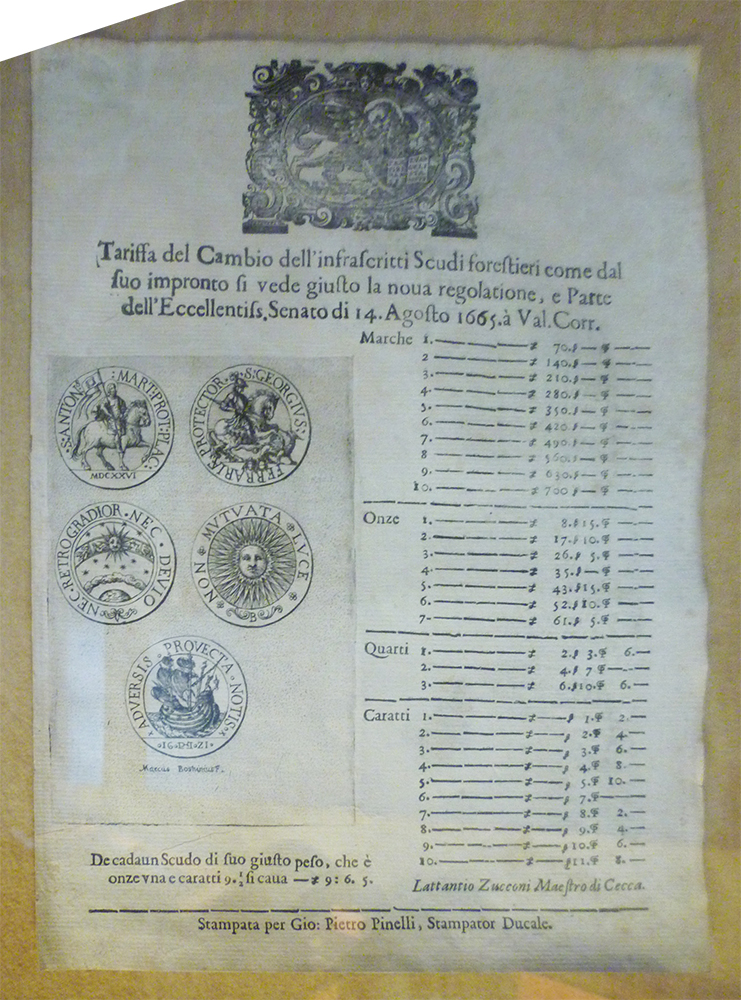 Tariffa del Cambio dell'infraſcritti Scudi foreſtieri come dal
ſuo impronto ſi vede giuſto la noua regolatione, e Parte
dell'Eccellentiſs. Senato di 14. Agoſto 1665. à Val. Corr.
S·ANTON·MART·PROT·PLAC·
MDCXXVI
S·GEORGIVS·
FERRARIÆ·PROTECTOR·
NEC·RETROGRADIOR·NEC·DEVIO
NON·MVTVATA LVCE
B
ADVERSIS PROVECTA·NOTIS·
Marcus Boschinius F.
De cadaun Scudo di ſuo giuſto peſo, che è
onze vna e caratti 9. ½ ſi caua — ≠ 9: 6. 5.
Marche 1. — ≠ 70. ß — ₰ —
2 — ≠ 140. ß — ₰ —
3. — ≠ 210. ß — ₰ —
4. — ≠ 280. ß — ₰ —
5. — ≠ 350. ß — ₰ —
6. — ≠ 420. ß — ₰ —
7. — ≠ 490. ß — ₰ —
8 — ≠ 560. ß — ₰ —
9. — ≠ 630. ß — ₰ —
10. — ≠ 700 ß — ₰ —
Onze 1. — ≠ 8. ß 15. ₰ —
2. — ≠ 17. ß 10. ₰ —
3. — ≠ 26. ß 5. ₰ —
4. — ≠ 35. ß — ₰ —
5. — ≠ 43. ß 15. ₰ —
6. — ≠ 52. ß 10. ₰ —
7- — ≠ 61. ß 5. ₰ —
Quarti 1. — ≠ 2. ß 3. ₰ 6. —
2. — ≠ 4. ß 7 ₰ —
3. — ≠ 6. ß 10. ₰ 6. —
Caratti 1. — ≠ — ß 1. ₰ 2. —
2. — ≠ — ß 2. ₰ 4. —
3. — ≠ — ß 3. ₰ 6. —
4. — ≠ — ß 4. ₰ 8. —
5. — ≠ — ß 5. ₰ 10. —
6. — ≠ — ß 7. ₰ —
7. — ≠ — ß 8. ₰ 2. —
8. — ≠ — ß 9. ₰ 4. —
9. — ≠ — ß 10. ₰ 6. —
10. — ≠ — ß 11. ₰ 8. —
Lattantio Zucconi Maeſtro di Cecca.
Stampata per Gio: Pietro Pinelli, Stampator Ducale.